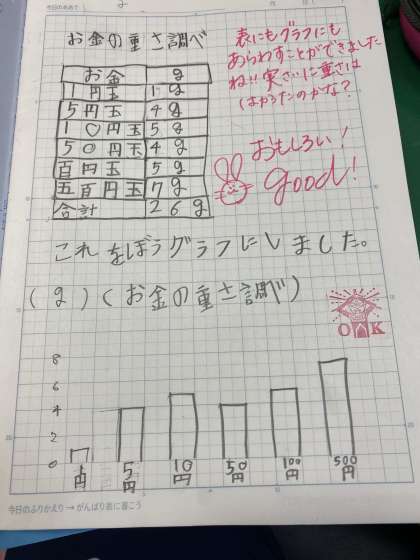 今日のめあて
お金の重さ調べ
お金 g
1円玉 1g
5円玉 4g
10円玉 5g
50円玉 4g
百円玉 5g
五百円玉 7g
合計 26g
表にもグラフにも
あらわすことができました
ね!!実さいに重さは
はかったのかな?
おもしろい!
good!
これをぼうグラフにしました。
(g)(お金の重さ調べ)
OK
8
6
4
2
0
1円 5円 10円 50円 100円 500円
今日のふりかえり→がんばり表に書こう